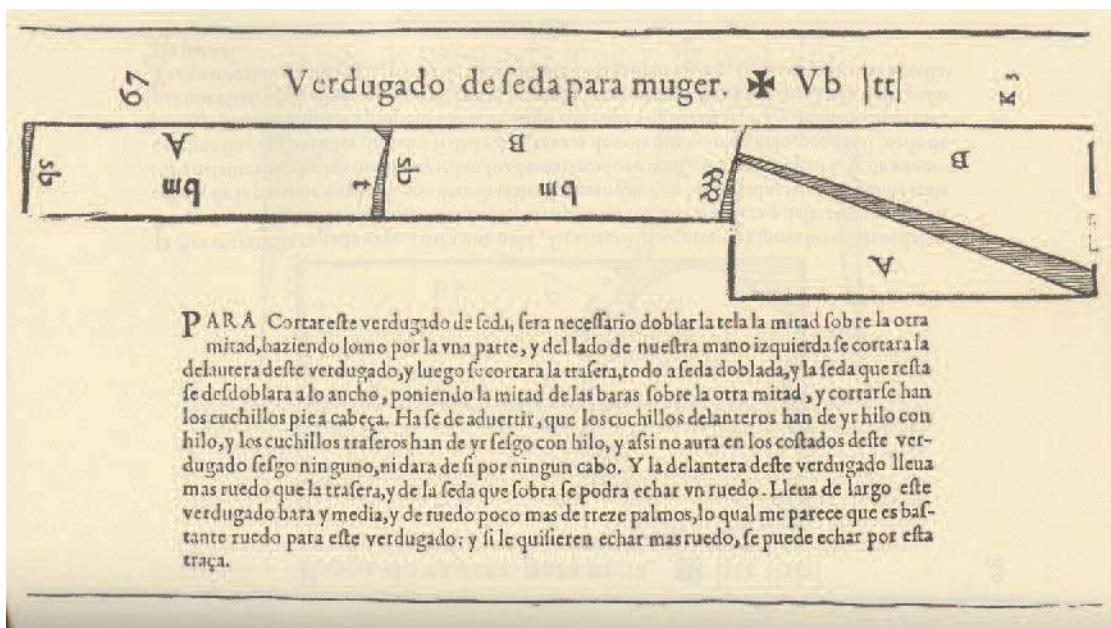 67 Verdugado de ſeda para muger. ✠ Vb tt K 5
A B B
sb bm sb bm
A
PARA Cortar eſte verdugado de ſeda, ſera neceſſario doblar la tela la mitad ſobre la otra
mitad, haziendo lomo por la vna parte, y del lado de nueſtra mano izquierda ſe cortara la
delantera deſte verdugado, y luego ſe cortara la traſera, todo a ſeda doblada, y la ſeda que reſta
ſe deſdoblara a lo ancho, poniendo la mitad de las baras ſobre la otra mitad, y cortarſe han
los cuchillos pie a cabeça. Ha ſe de aduertir, que los cuchillos delanteros han de yr hilo con
hilo, y los cuchillos traſeros han de yr ſeſgo con hilo, y aſsi no aura en los coſtados deſte ver-
dugado ſeſgo ninguno, ni dara de ſi por ningun cabo. Y la delantera deſte verdugado lleua
mas ruedo que la traſera, y de la ſeda que ſobra ſe podra echar vn ruedo. Lleua de largo eſte
verdugado bara y media, y de ruedo poco mas de treze palmos, lo qual me parece que es baſ-
tante ruedo para eſte verdugado: y ſi le quiſieren echar mas ruedo, ſe puede echar por eſta
traça.